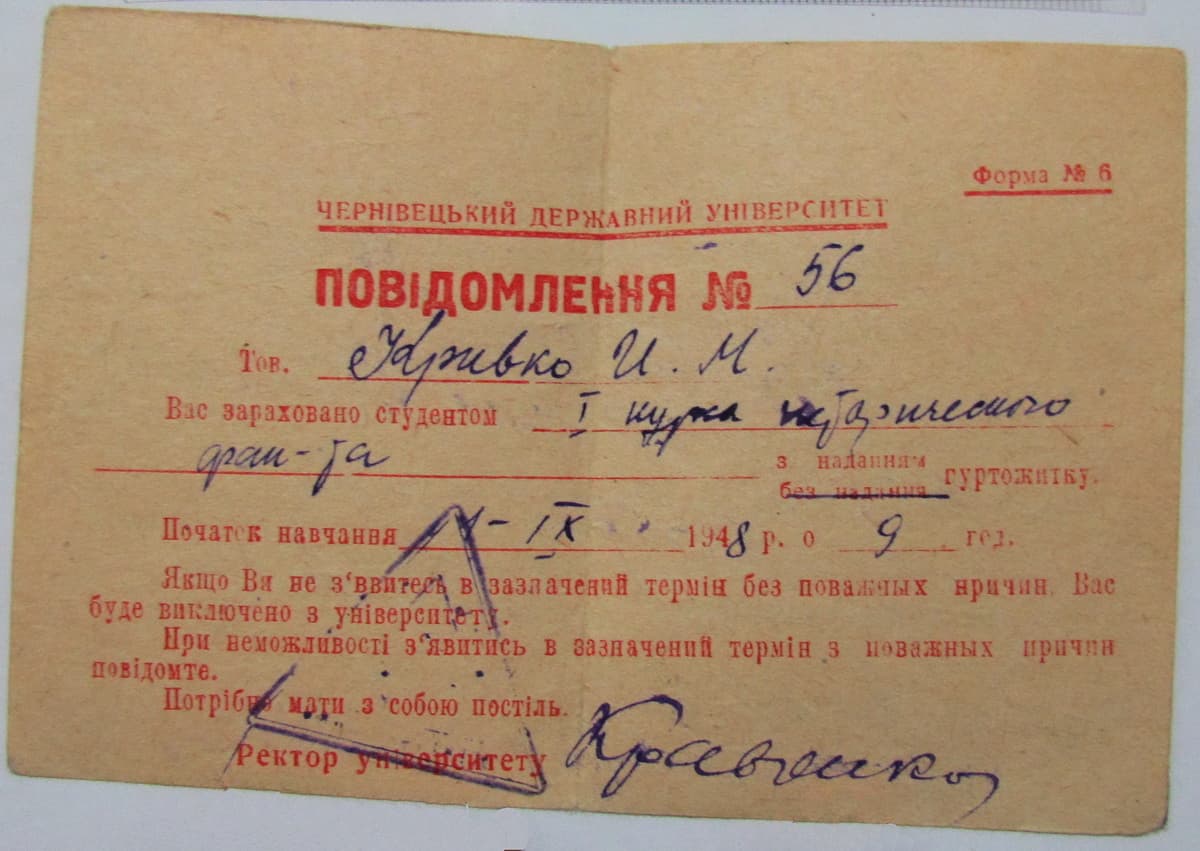 Форма № 6
ЧЕРНІВЕЦЬКИЙ ДЕРЖАВНИЙ УНІВЕРСИТЕТ
ПОВІДОМЛЕННЯ № 56
Тов. Кривко И. М.
Вас зараховано студентом I курса исторического
фак-та з наданням
без надання гуртожитку.
Початок навчання 1-IX 1948 р. о 9 год.
Якщо Ви не з'явитесь в зазначений термін без поважних причин, Вас
буде виключено з університету.
При неможливості з'явитись в зазначений термін з поважних причин
повідомте.
Потрібно мати з собою постіль.
Ректор університету